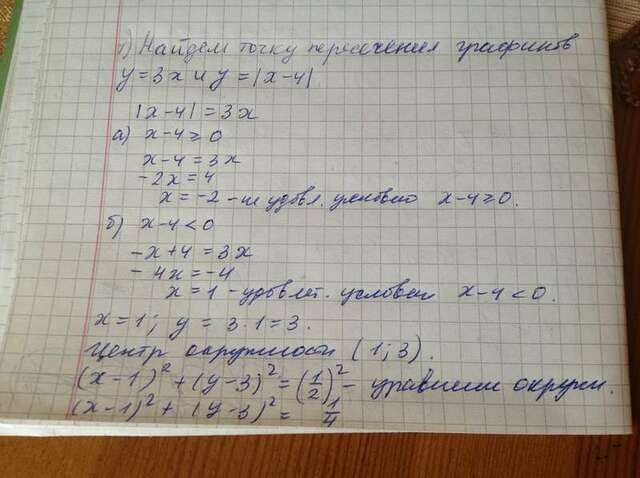 1) Найдем точку пересечения графиков
y=3x и y=|x-4|
|x-4|=3x
а) x-4≥0
x-4=3x
-2x=4
x=-2 - не удовл. условию x-4≥0.
б) x-4<0
-x+4=3x
-4x=-4
x=1 - удовлет. условию x-4<0.
x=1; y=3·1=3.
Центр окружности (1;3).
(x-1)²+(y-3)²=(1/2)² - уравнение окружн.
(x-1)²+(y-3)²=1/4